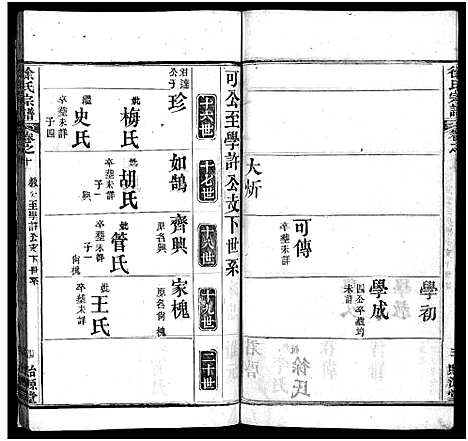 徐氏宗譜
學初
學成
四公卒塟均
未詳
可傳
卒塟未詳
大炘
徐氏
可公至學許公支下世系
十六世
十七世
十八世
十九世
二十世
珍
妣梅氏
卒塟未詳
繼史氏
卒塟未詳
子四
如鵠
妣胡氏
卒塟未詳
子一
齊興
原名興
妣管氏
卒塟未詳
子一
尙槐
家槐
原名尙槐
妣王氏
卒塟未詳
徐氏宗譜
卷之十
教公至學許公支下世系
四
治源堂